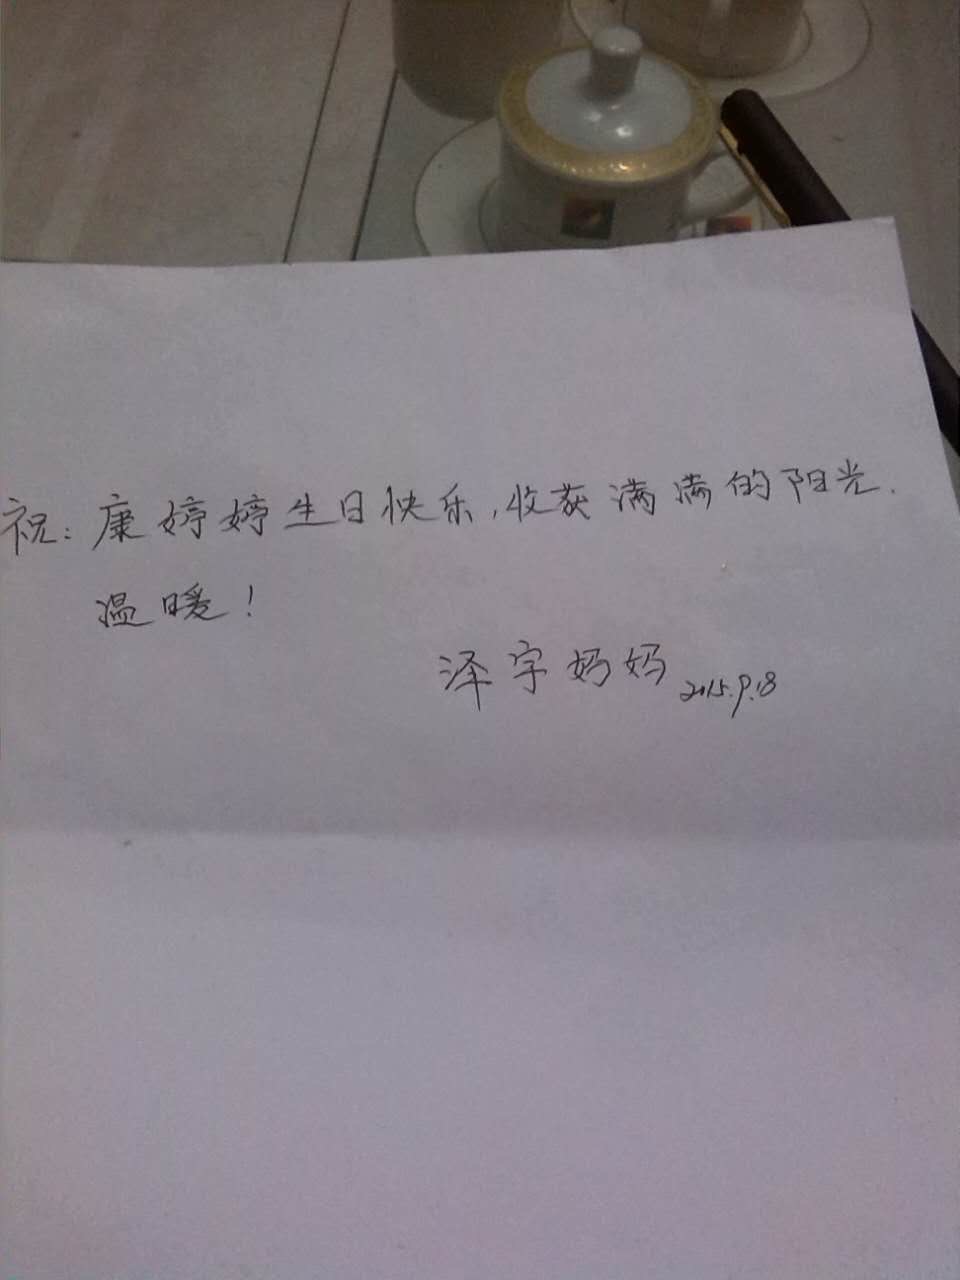 祝：康婷婷生日快乐，收获满满的阳光、
温暖！
泽宇妈妈 2015.9.18